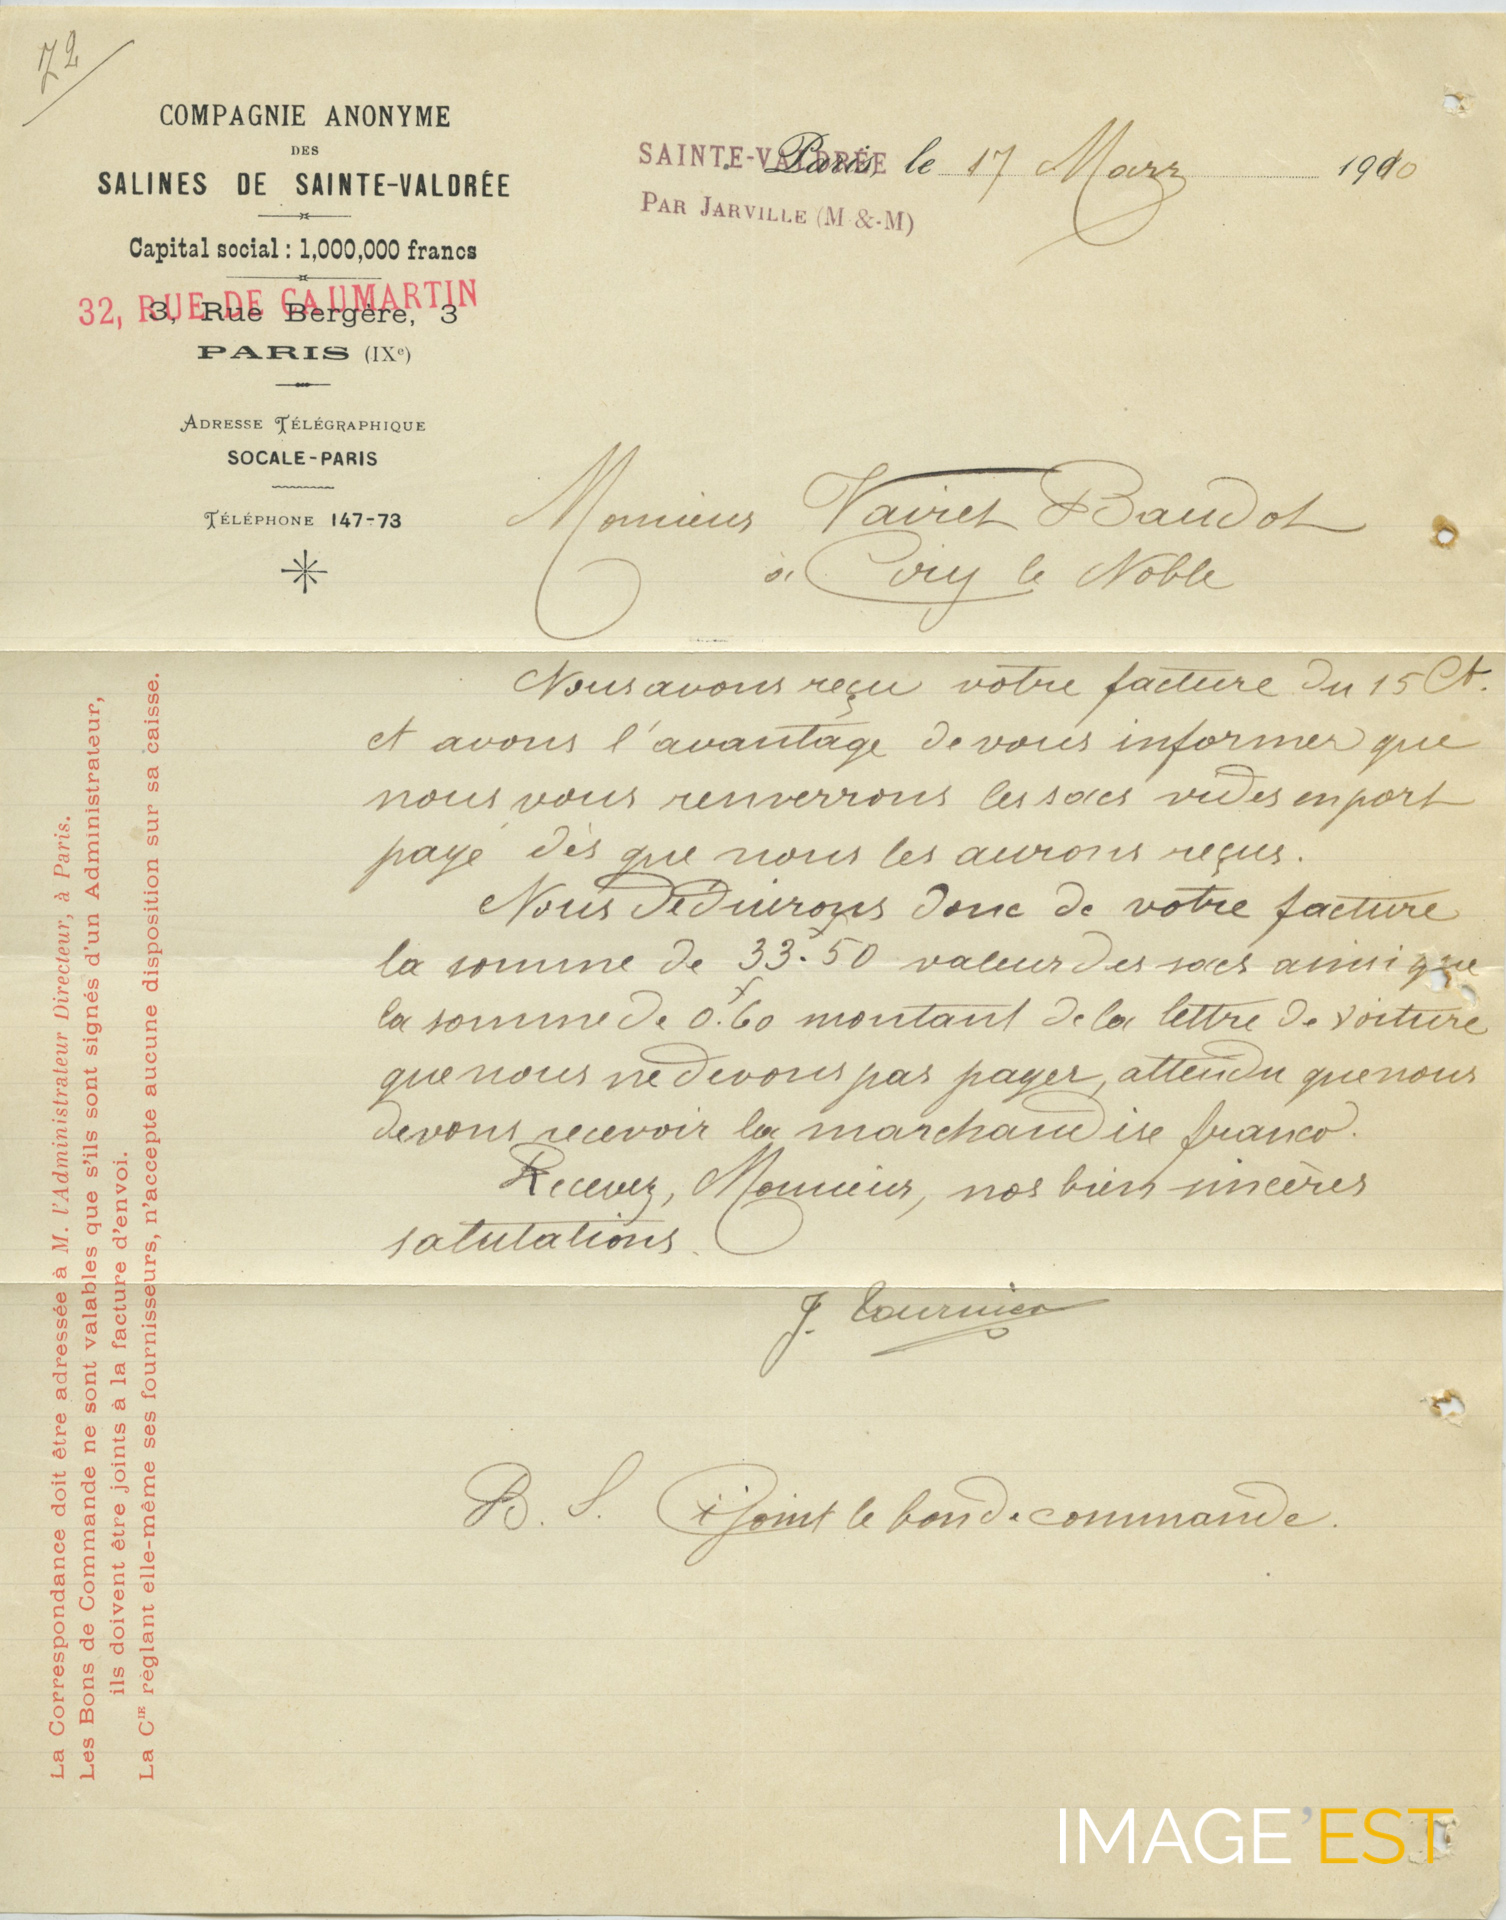 72
COMPAGNIE ANONYME
DES
SALINES DE SAINTE-VALDRÉE
Capital social : 1,000,000 francs
32, RUE DE CAUMARTIN
3, Rue Bergère, 3
PARIS (IXe)
ADRESSE TÉLÉGRAPHIQUE
SOCALE-PARIS
TÉLÉPHONE 147-73
SAINTE-VALDRÉE
PAR JARVILLE (M-&-M)
Paris, le 17 Mars 1910
Monsieur Vairet Baudot
à Ciry le Noble
Nous avons reçu votre facture du 15 Ct.
et avons l'avantage de vous informer que
nous vous renverrons les sacs vides en port
payé dès que nous les aurons reçus.
Nous déduirons donc de votre facture
la somme de 33f.50 valeur des sacs ainsi que
la somme de 0f.60 montant de la lettre de voiture
que nous ne devons pas payer, attendu que nous
devons recevoir la marchandise franco.
Recevez, Monsieur, nos bien sincères
salutations.
J. Tournier
P. S. Ci joint le bon de commande.
La Correspondance doit être adressée à M. l'Administrateur Directeur, à Paris.
Les Bons de Commande ne sont valables que s'ils sont signés d'un Administrateur,
ils doivent être joints à la facture d'envoi.
La CIE règlant elle-même ses fournisseurs, n'accepte aucune disposition sur sa caisse.
IMAGE'EST